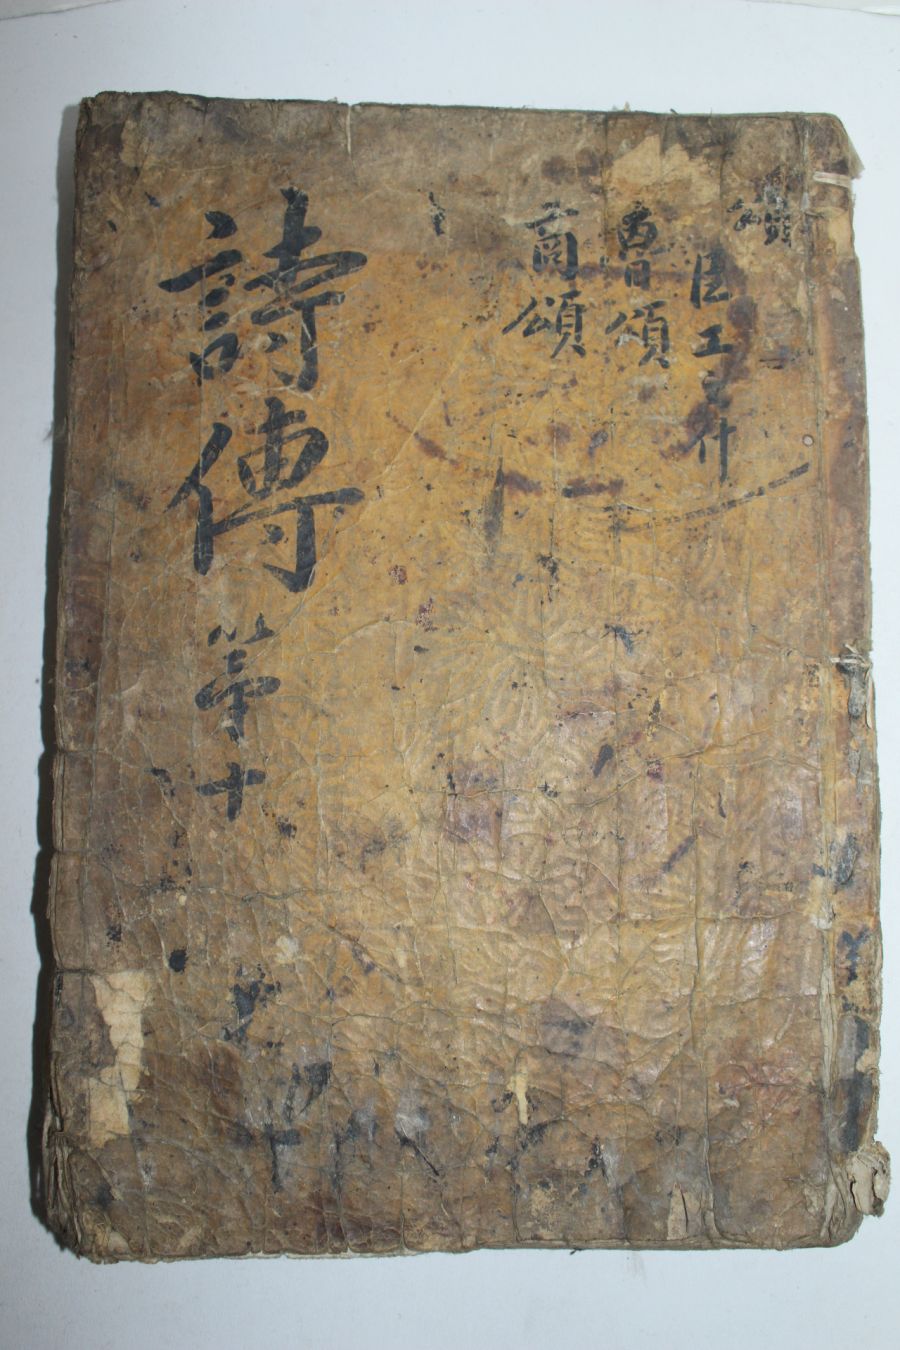 臣工之什
魯頌
商頌
詩傳 第十